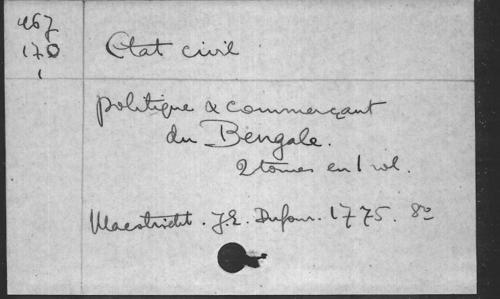 467
170
1
Etat civil
politique & commerçant
du Bengale.
2 tomes en 1 vol.
Maestricht. J.E. Dufour. 1775. 8º